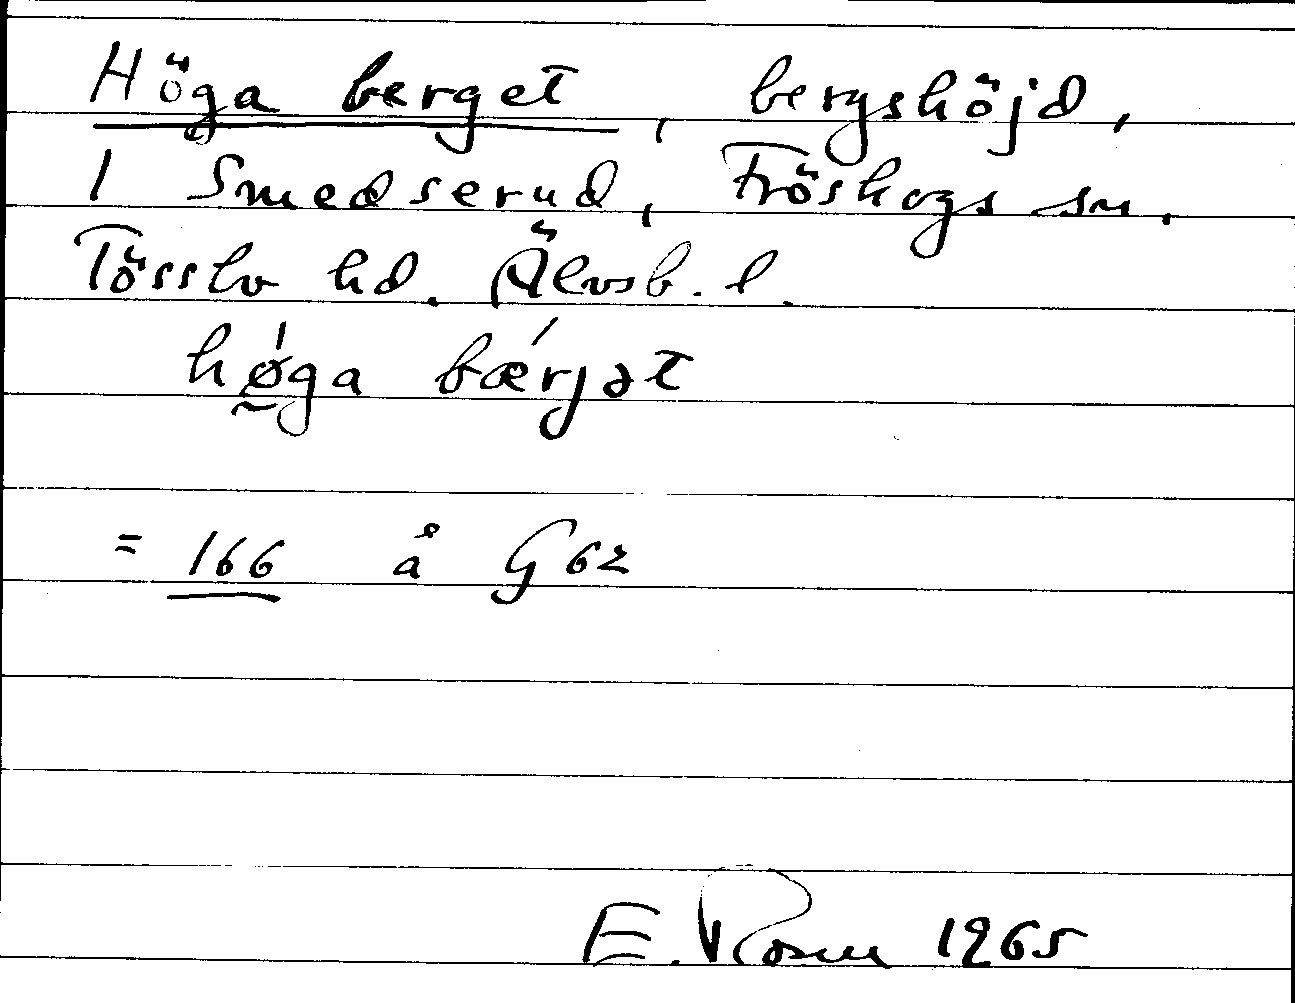 Höga berget, bergshöjd,
1 Smedserud, Fröskogs sn.
Tösslv hd. Älvsb. l.
hǿ̰ga bǽrjət
= 166 å G 62
E. Rosen 1965